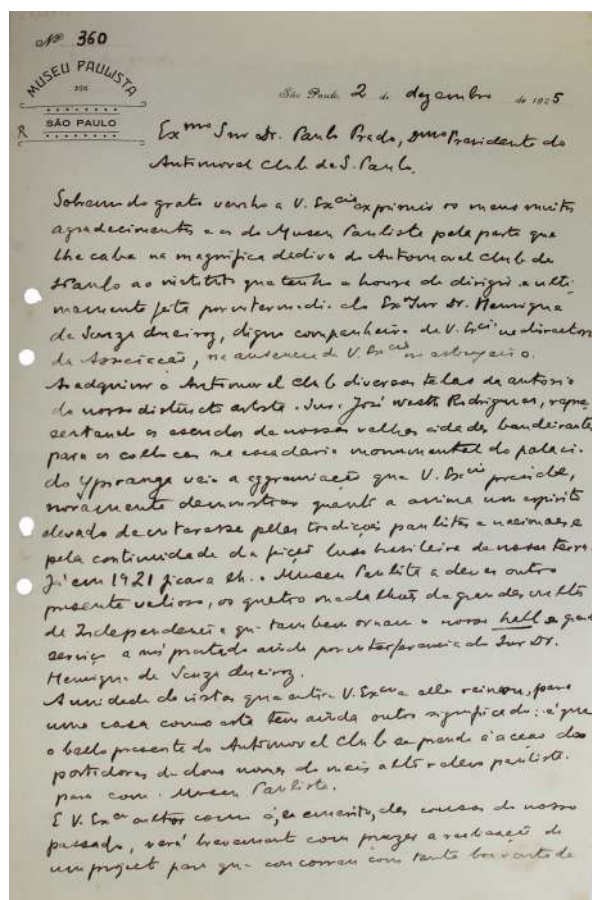 Nº 360
MUSEU PAULISTA
SÃO PAULO
R
São Paulo, 2 de dezembro de 1925
Exmo Snr Dr. Paulo Prado, Dmo Presidente do
Automovel Club de S. Paulo.
Sobremodo grato venho a V. Excia exprimir os meus muitos
agradecimentos e os do Museu Paulista pela parte que
lhe cabe na magnifica dadiva do Automovel Club de
S Paulo ao instituto que tenho a honra de dirigir e ulti
mamente feita por intermedio do Exmo Snr Dr. Henrique
de Souza Queiroz, digno companheiro de V. Excia na directoria
da Associação, na ausencia de V. Excia
adquirir o Automovel Club diversas telas da autoria
do nosso distincto artista Snr. José Wasth Rodrigues, repre
sentando os escudos de nossas velhas cidades bandeirantes
para os collocar na escadaria monumental do palacio
do Ypiranga veio a aggremiação que V. Excia preside,
novamente demonstrar quanto a anima um espirito
elevado de interesse pelas tradições paulistas e nacionaes e
pela continuidade da feição luso brasileira de nossa terra.
Já em 1921 ficara lhe o Museu Paulista a dever outro
presente valioso, os quatro medalhões de grandes vultos
da Independencia que tambem ornam o nosso hall e
serviço a nós prestado ainda por interferencia do Snr Dr.
Henrique de Souza Queiroz.
A unidade de vistas que entre V. Excia e elle reinou, para
uma casa como esta tem ainda outro significado: é que
o bello presente do Automovel Club se prende á acção dos
portadores de dous nomes do mais alto relevo paulista
para com o Museu Paulista.
E V. Excia cultor como é, e emerito, das cousas do nosso
passado, verá brevemente com prazer a realisação de
um projecto para que concorreu com tanta boa vontade